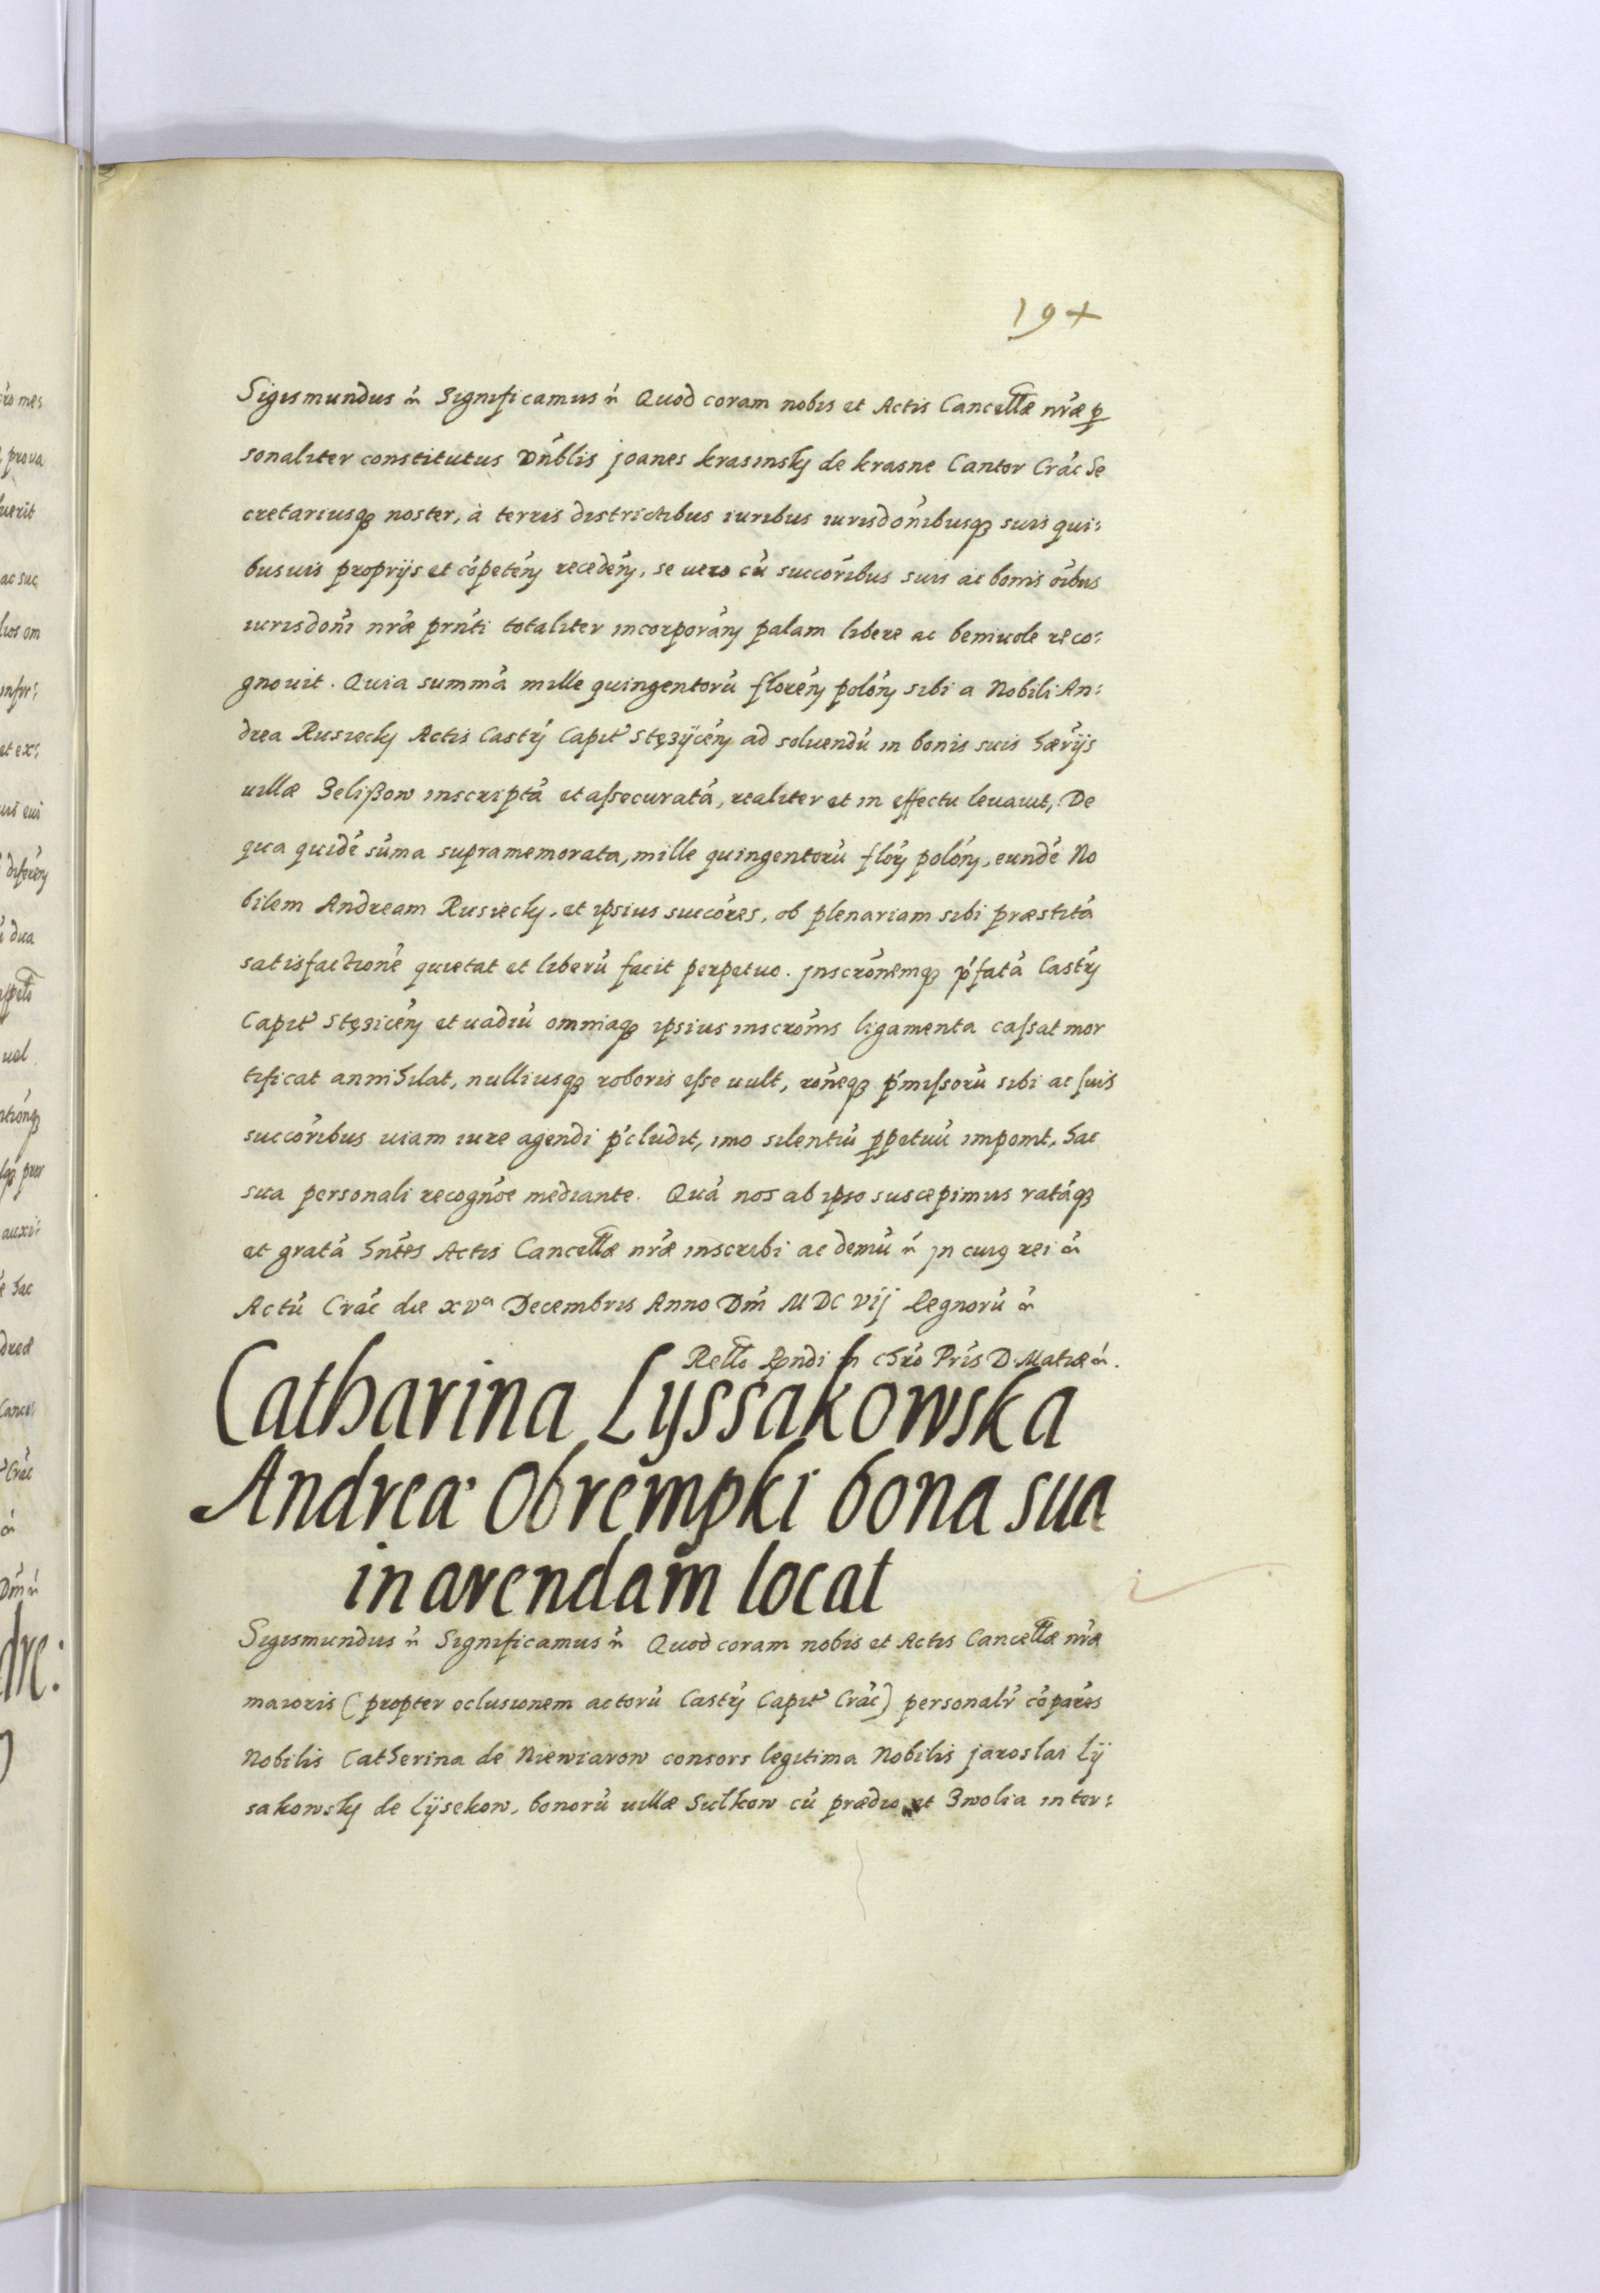 19+
Sigismundus ět Significamus ět Quod coram nobis et Actis Cancellæ nr̃æ p
sonaliter constitutus Vn̓blis Joanes Krasinsky de Krasne Cantor Crac̓ Se
cretariusq̃ noster, à terris districtibus iuribus iurisdon̓ibusq̃ suis qui:
busuis proprijs et co̓pete̓n recede̓n, se vero cu̓ succo̓ribus suis ac bonis o̓ibus
iurisdon̓i nr̓æ prn̓ti totaliter incorpora̓n palam libere ac beniuole reco:
gnouit. Quia summa̓ mille quingentoru̓ flore̓n polo̓n sibi a Nobili An:
drea Rusiecky Actis Castr̓ Capit̓ Stęzÿce̓n ad soluendu̓ in bonis suis hær̓ijs
uillæ Zelißow inscripta̓ et assecurata̓, realiter et in effectu leuauit, De
qua quide̓ su̓ma supramemorata, mille quingentoru̓ flor̓ polo̓n, eunde̓ No
bilem Andream Rusiecky, et ipsius succo̓res, ob plenariam sibi præstita̓
satisfactione̓ quietat et liberu̓ facit perpetuo. Jnscro̓nemq̃ p̓fata̓ Castr̓
Capit̓ Stęzice̓n et uadiu̓ omniaq̃ ipsius inscro̓nis ligamenta cassat mor
tificat annihilat, nulliusq̃ roboris esse uult, ro̓neq̃ p̓missoru̓ sibi ac suis
succo̓ribus uiam iure agendi p̓cludit, imo silentiu̓ ppetuu̓ imponit, hac
sua personali recogn̓oe mediante. Qua̓ nos ab ipso suscepimus rata̓q̃
et grata̓ hn̓tes Actis Cancellæ nr̓æ inscribi ac demu̓ ět Jn cuiq rei ět
Actu̓ Crac̓ die xvª Decembris Anno Dn̓i MDCvij Regnoru̓ ět
Rello Rndi in Chro̓ Pr̓is D. Matiæ ět.
Catharina Lyssakowska
Andreæ Obrempki bona sua
in arendam locat
Sigismundus ět Significamus ět Quod coram nobis et Actis Cancellæ nr̓æ
maioris (propter oclusionem actoru̓ Castr̓ Capit̓ Crac̓) personalr̓ co̓pare̓s
Nobilis Catherina de Niewiarow consors legitima Nobilis Jaroslai Lÿ
sakowsky de Lÿsekow, bonoru̓ uillæ Sulkow cu̓ prædio et Zwolia in ter: